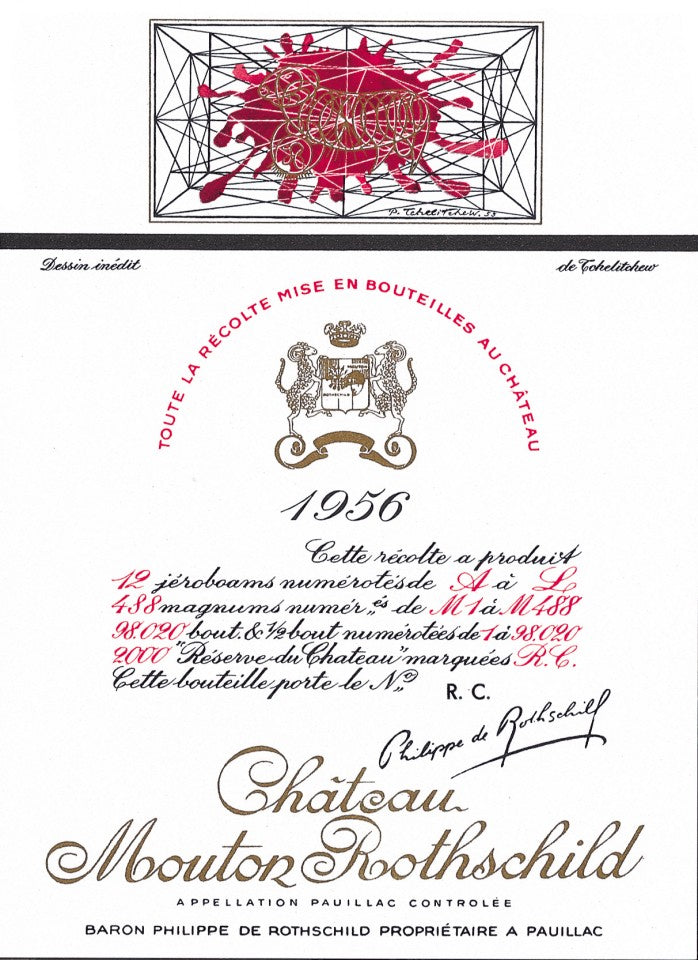 P. Tchelitchew. 53
Dessin inédit
de Tchelitchew
TOUTE LA RÉCOLTE MISE EN BOUTEILLES AU CHÂTEAU
ROTHSCHILD
1956
Cette récolte a produit
12 jéroboams numérotés de A à L
488 magnums numér„és de M1 à M488
98.020 bout. & 1/2 bout numérotées de 1 à 98.020
2000 "Réserve du Chateau" marquées R.C.
Cette bouteille porte le No R. C.
Philippe de Rothschild
Château
Mouton Rothschild
APPELLATION PAUILLAC CONTROLÉE
BARON PHILIPPE DE ROTHSCHILD PROPRIÉTAIRE A PAUILLAC